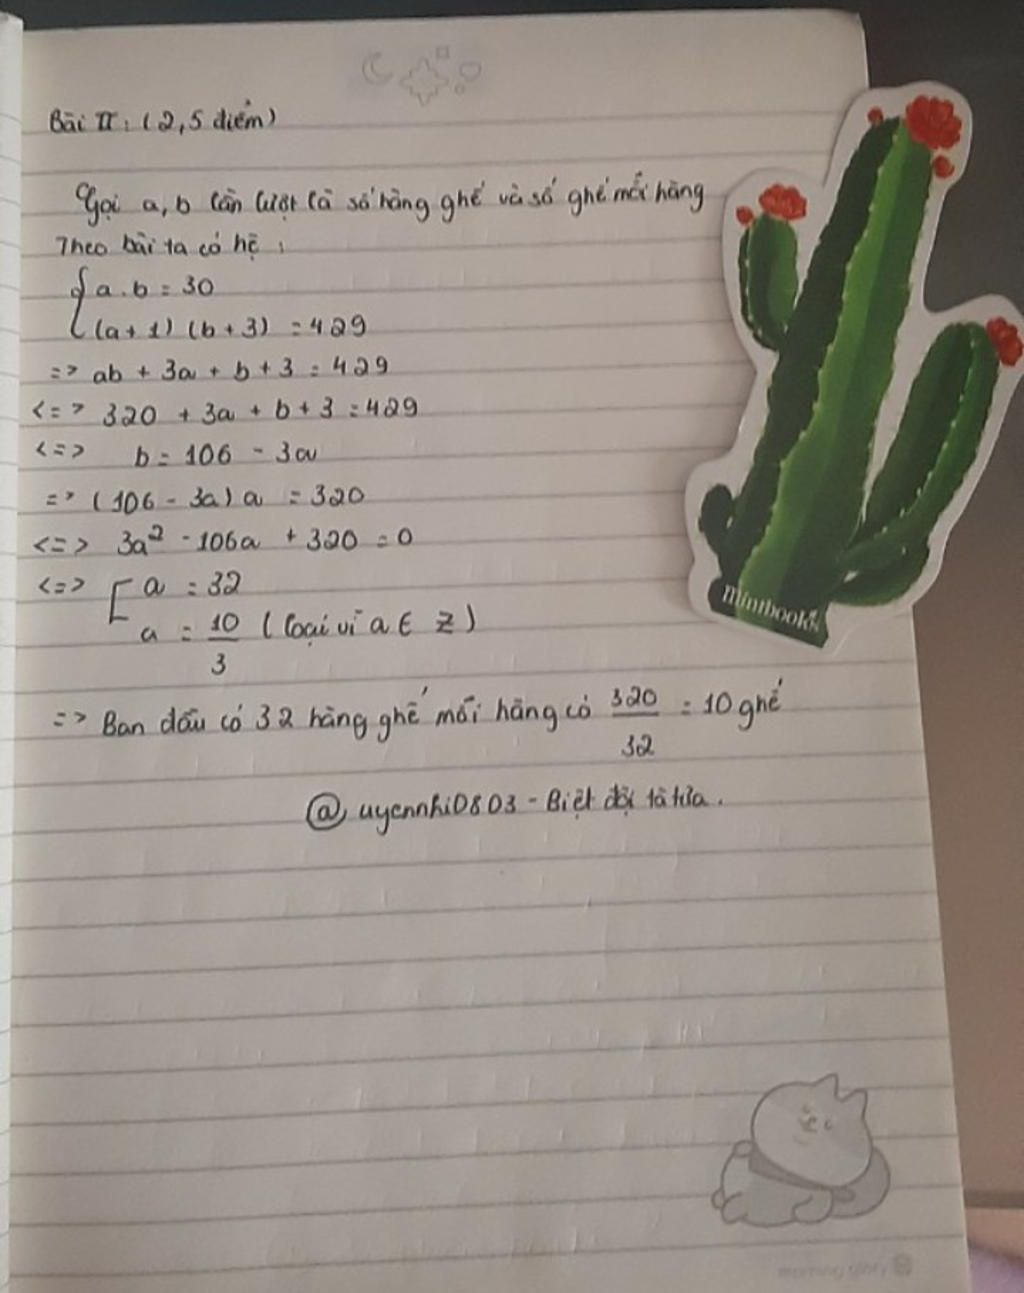 Bài II: (2,5 điểm)
Gọi a, b lần lượt là số hàng ghế và số ghế mỗi hàng
Theo bài ta có hệ:
{ a.b = 30
(a+1) (b+3) = 429
=> ab + 3a + b + 3 = 429
<=> 320 + 3a + b + 3 = 429
<=> b = 106 - 3a
=> (106 - 3a) a = 320
<=> 3a² - 106a + 320 = 0
<=> [ a = 32
a = 10/3 (loại vì a ∈ Z)
=> Ban đầu có 32 hàng ghế mỗi hàng có 320/32 = 10 ghế
@uyennhi0803 - Biệt đội tà tửa.
mintbooks
morning glory